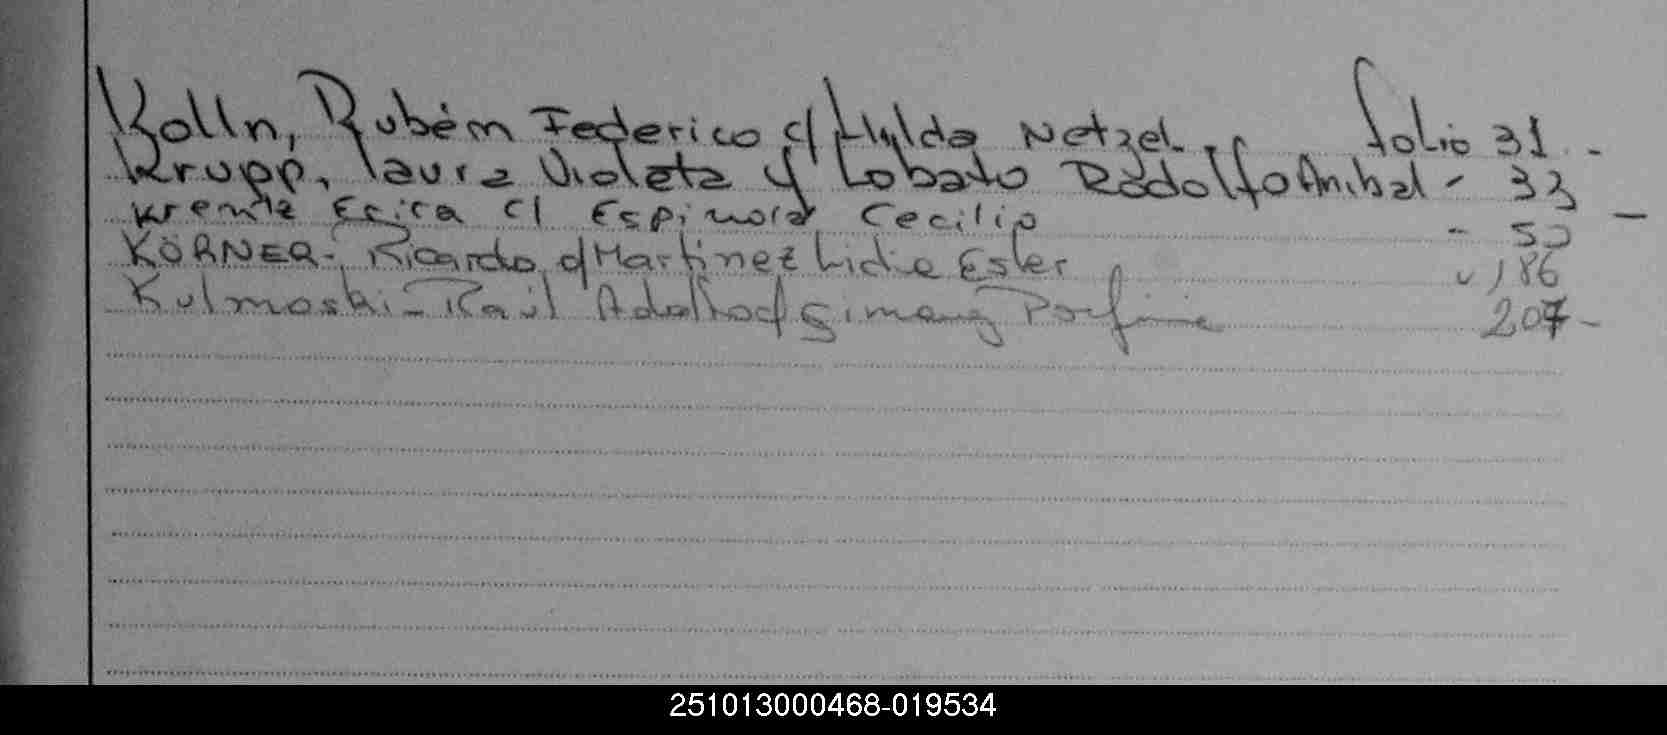 Kolln, Rubém Federico c/ Hylda Netzel. folio 31 -
Krupp, Laura Violeta y Lobato Rodolfo Anibal - 33
Kremtz Erica c/ Espinola Cecilio - 50 -
KÖRNER-, Ricardo, c/ Martinez Lidia Ester " 186
Kulmoski - Raúl Adolfo c/ Gimeng Porfiria 207 -
251013000468-019534